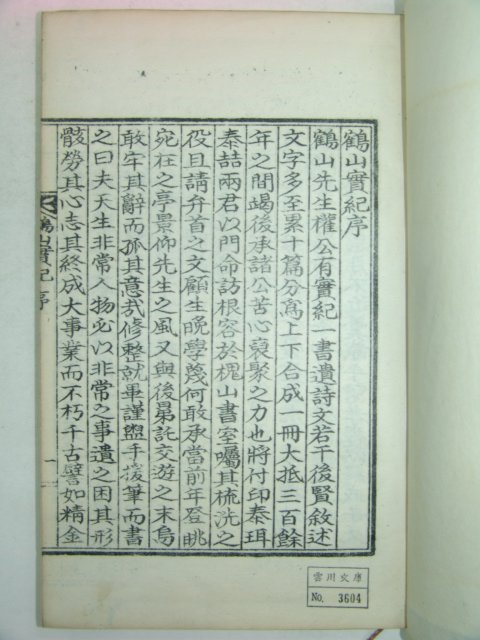 鶴山實紀序
鶴山先生權公有實紀一書遺詩文若干後賢敘述
文字多至累十篇分爲上下合成一冊大抵三百餘
年之間竭後承諸公苦心裒聚之力也將付印泰珥
泰喆兩君以門命訪根容於槐山書室囑其梳洗之
役且請弁首之文顧生晚學蔑何敢承當前年登眺
宛在之亭景仰先生之風又與後昆託交遊之末烏
敢牢其辭而孤其意哉修整就畢謹盥手援筆而書
之曰夫天生非常人物必以非常之事遺之困其形
骸勞其心志其終成大事業而不朽千古譬如精金
鶴山實紀 序 一
雲川文庫
No. 3604